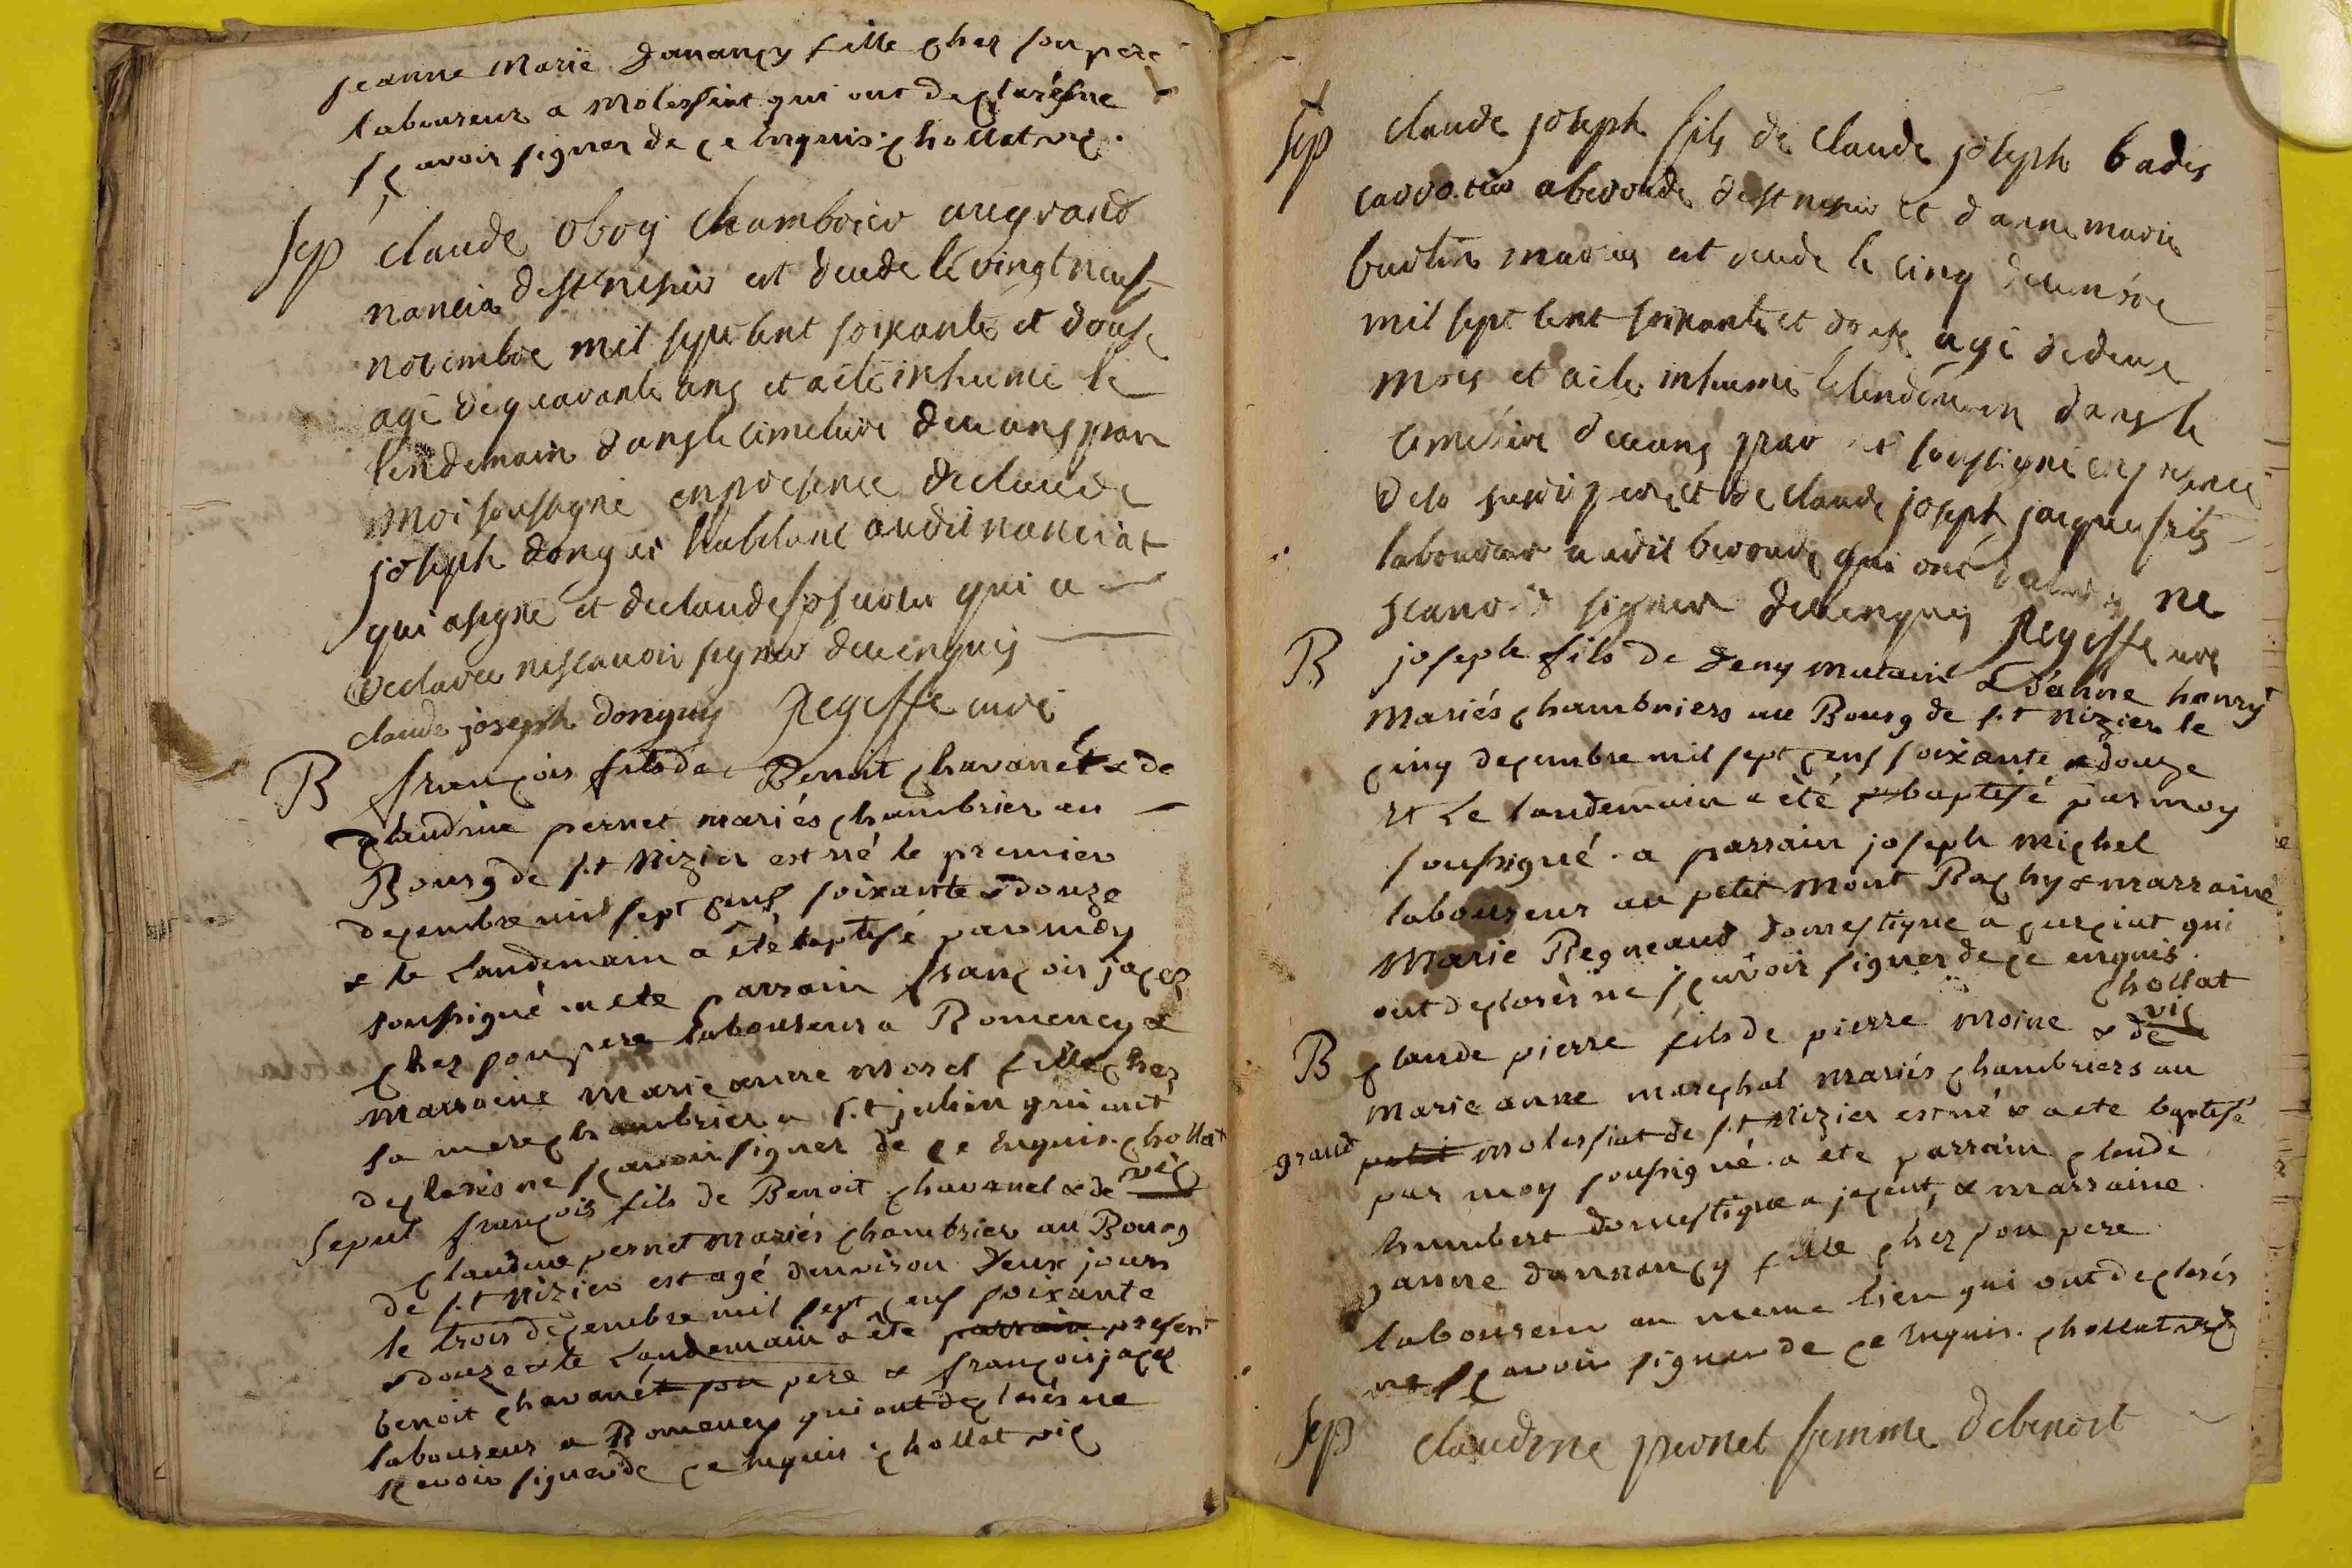 jeanne Marie Danançy fille chez son pere
laboureur a Molessiat qui ont declarés ne
sçavoir signer de ce enquis. chollat vic.
sep claude oboy chambrier au grand
nancia de st nesier est decede le vingt neuf
novembre mil sept cent soixante et douse
agé de quarante ans et a ete inhumé le
lendemain dans le cimetiere de ceans par
moi soussigné en presence de claude
joseph donguis habitant audit nanciat
qui a signé et de claude qui a
declaré ne scavoir signer de ce enquis
claude joseph donguy Regeffe curé
B françois fils de Benoit chavanet & de
claudine pernet mariés chambrier au
Bourg de s.t Nizier est né le premier
decembre mil sept cens soixante & douze
& le landemain a été baptisé par moy
soussigné a ete parrain françois
chez son pere laboureur a Romency &
marraine marie anne morel fille chez
sa mere chambrier a s.t julien qui ont
declarés ne sçavoir signer de ce enquis. chollat
vic
Sepul françois fils de Benoit chavanet & de
claudine pernet mariés chambrier au Bourg
de s.t Nizier est agé d'environ deux jours
le trois decembre mil sept cens soixante
& douze & le landemain a été parrain present
benoit chavanet son pere & françois
laboureur a Romency qui ont declarés ne
scavoir signer de ce enquis chollat vic
sep claude joseph fils de claude joseph badis
a beroude de st nesier et d'anne marie
burtin mariés est decede le cinq decembre
mil sept cent soixante et dose agé de deux
mois et a ete inhumé le lendemain dans le
cimetiere de ceans par soussigné en presence
pere et de claude joseph fils
laboureur audit beroude qui ont ne
scavoir signer de ce enquis Regeffe curé
B joseph fils de Deny mutain & d'anne henry
Mariés chambriers au Bourg de s.t Nizier le
cinq decembre mil sept cens soixante & douze
et Le landemain a été baptisé par moy
soussigné. a parrain joseph michel
laboureur au petit Mont Rachy & marraine
Marie Regneaud domestique a curciat qui
ont declarés ne sçavoir signer de ce enquis.
chollat
vic
B claude pierre fils de pierre moine & de
Marie anne marechal mariés chambriers au
grand petit molessiat de s.t Nizier est né & a ete baptisé
par moy soussigné. a ete parrain claude
humbert domestique a & marraine
janne dannançy fille chez son pere
laboureur au meme lieu qui ont declarés
ne sçavoir signer de ce enquis. chollat vic
sep claudine pernet femme de benoit